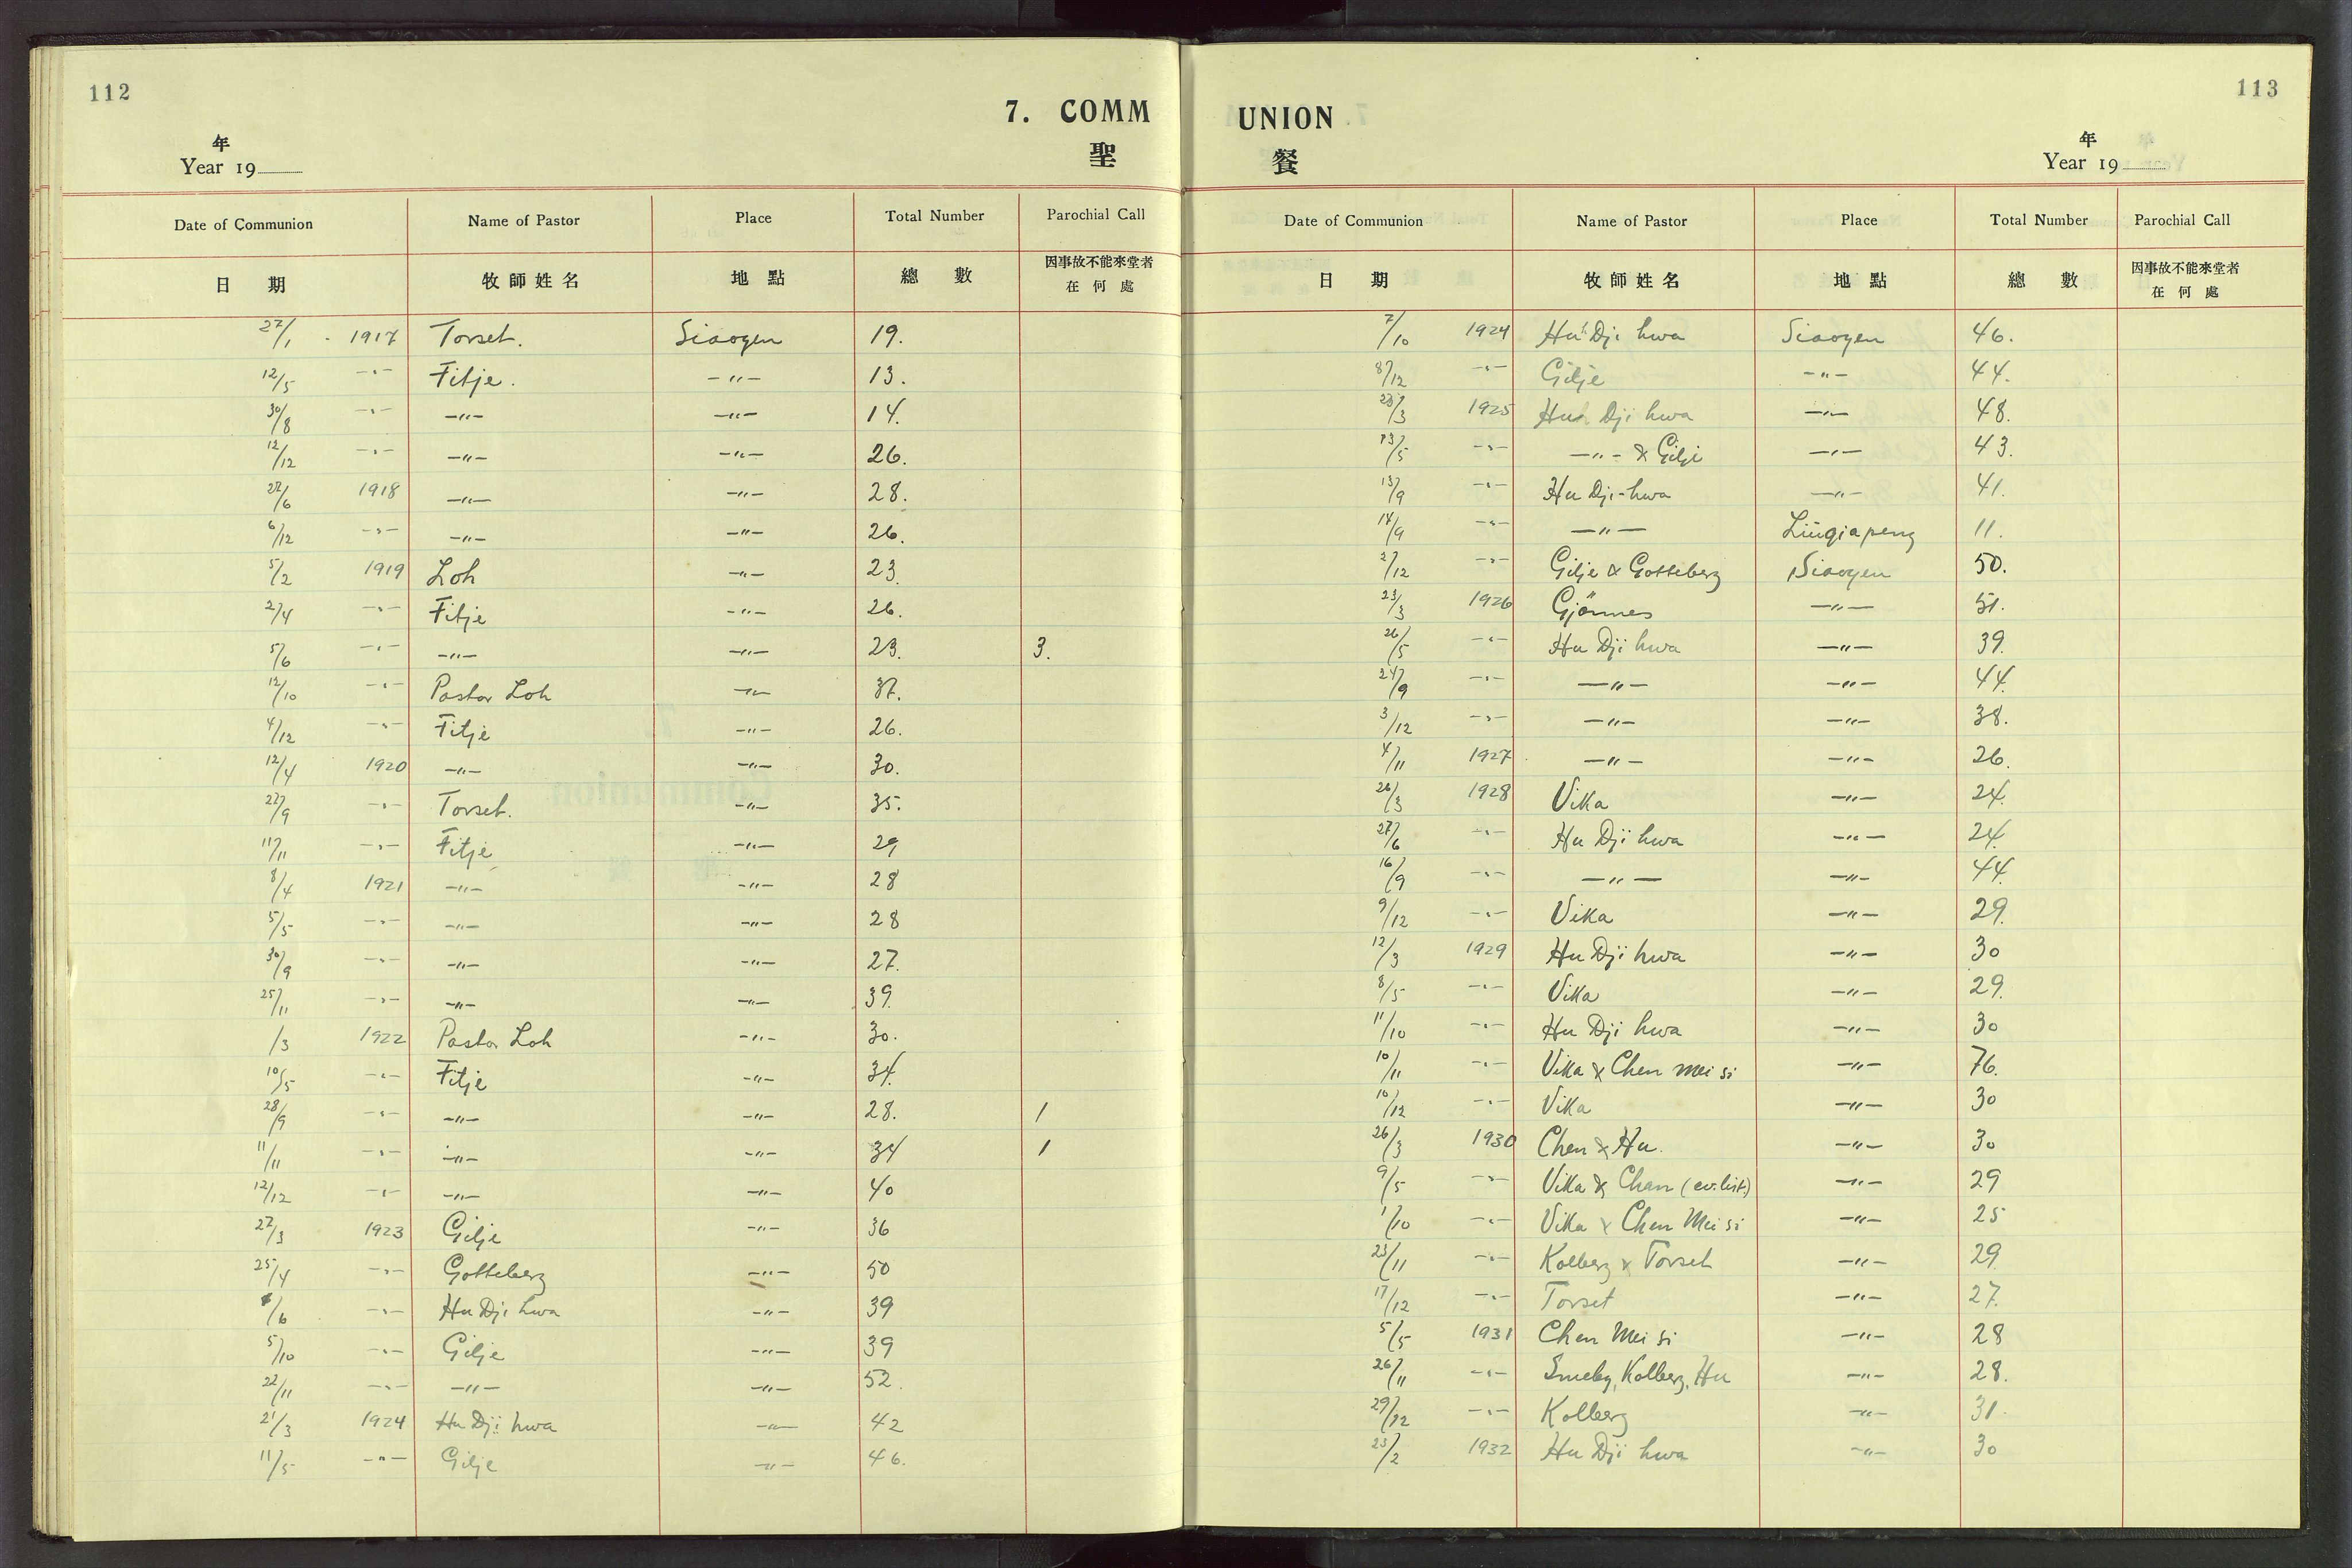 112
7. COMM
年
聖
Year 19
Date of Communion Name of Pastor Place Total Number Parochial Call
日 期 牧師姓名 地點 總數 因事故不能來堂者
在何處
27/1 - 1917 Torset. Siaogen 19.
12/5 -"- Fitje. -"- 13.
30/8 -"- -"- -"- 14.
12/12 -"- -"- -"- 26.
27/6 1918 -"- -"- 28.
6/12 -"- -"- -"- 26.
5/2 1919 Loh -"- 23.
2/4 -"- Fitje -"- 26.
5/6 -"- -"- -"- 23. 3.
12/10 -"- Pastor Loh -"- 37.
4/12 -"- Fitje -"- 26.
12/4 1920 -"- -"- 30.
27/9 -"- Torset. -"- 35.
11/11 -"- Fitje -"- 29
8/4 1921 -"- -"- 28
5/5 -"- -"- -"- 28
30/9 -"- -"- -"- 27.
25/11 -"- -"- -"- 39.
/3 1922 Pastor Loh -"- 30.
10/5 -"- Fitje -"- 34.
28/9 -"- -"- -"- 28. 1
11/11 -"- -"- -"- 34 1
12/12 -"- -"- -"- 40
27/3 1923 Gilje -"- 36
25/4 -"- Gotteberg -"- 50
/6 -"- Hu Dji hwa -"- 39
5/10 -"- Gilje -"- 39
22/11 -"- -"- -"- 52.
21/3 1924 Hu Dji hwa -"- 42
11/5 -"- Gilje -"- 46.
113
UNION
年
餐
Year 19
Date of Communion Name of Pastor Place Total Number Parochial Call
日 期 牧師姓名 地點 總數 因事故不能來堂者
在何處
7/10 1924 Huh Dji hwa Siaogen 46.
8/12 -"- Gilje -"- 44.
23/3 1925 Huh Dji hwa -"- 48.
13/5 -"- -"- & Gilje -"- 43.
13/9 -"- Hu Dji-hwa -"- 41.
14/9 -"- -"- Liugiapeng 11.
2/12 -"- Gilje & Gotteberg Siaogen 50.
23/3 1926 Gjönnes -"- 51.
26/5 -"- Hu Dji hwa -"- 39.
24/9 -"- -"- -"- 44.
3/12 -"- -"- -"- 38.
4/11 1927 -"- -"- 26.
26/3 1928 Vika -"- 24.
27/6 -"- Hu Dji hwa -"- 24.
16/9 -"- -"- -"- 44.
9/12 -"- Vika -"- 29.
12/3 1929 Hu Dji hwa -"- 30
8/5 -"- Vika -"- 29.
11/10 -"- Hu Dji hwa -"- 30
10/11 -"- Vika & Chen Mei si -"- 76.
10/12 -"- Vika -"- 30
26/3 1930 Chen & Hu. -"- 30
9/5 -"- Vika & Chan (ev.list.) -"- 29
1/10 -"- Vika & Chen Mei si -"- 25
23/11 -"- Kolberg & Torset -"- 29.
17/12 -"- Torset -"- 27.
5/5 1931 Chen Mei si -"- 28
26/11 -"- Smeby, Kolberg, Hu -"- 28.
29/12 -"- Kolberg -"- 31.
23/2 1932 Hu Dji hwa -"- 30